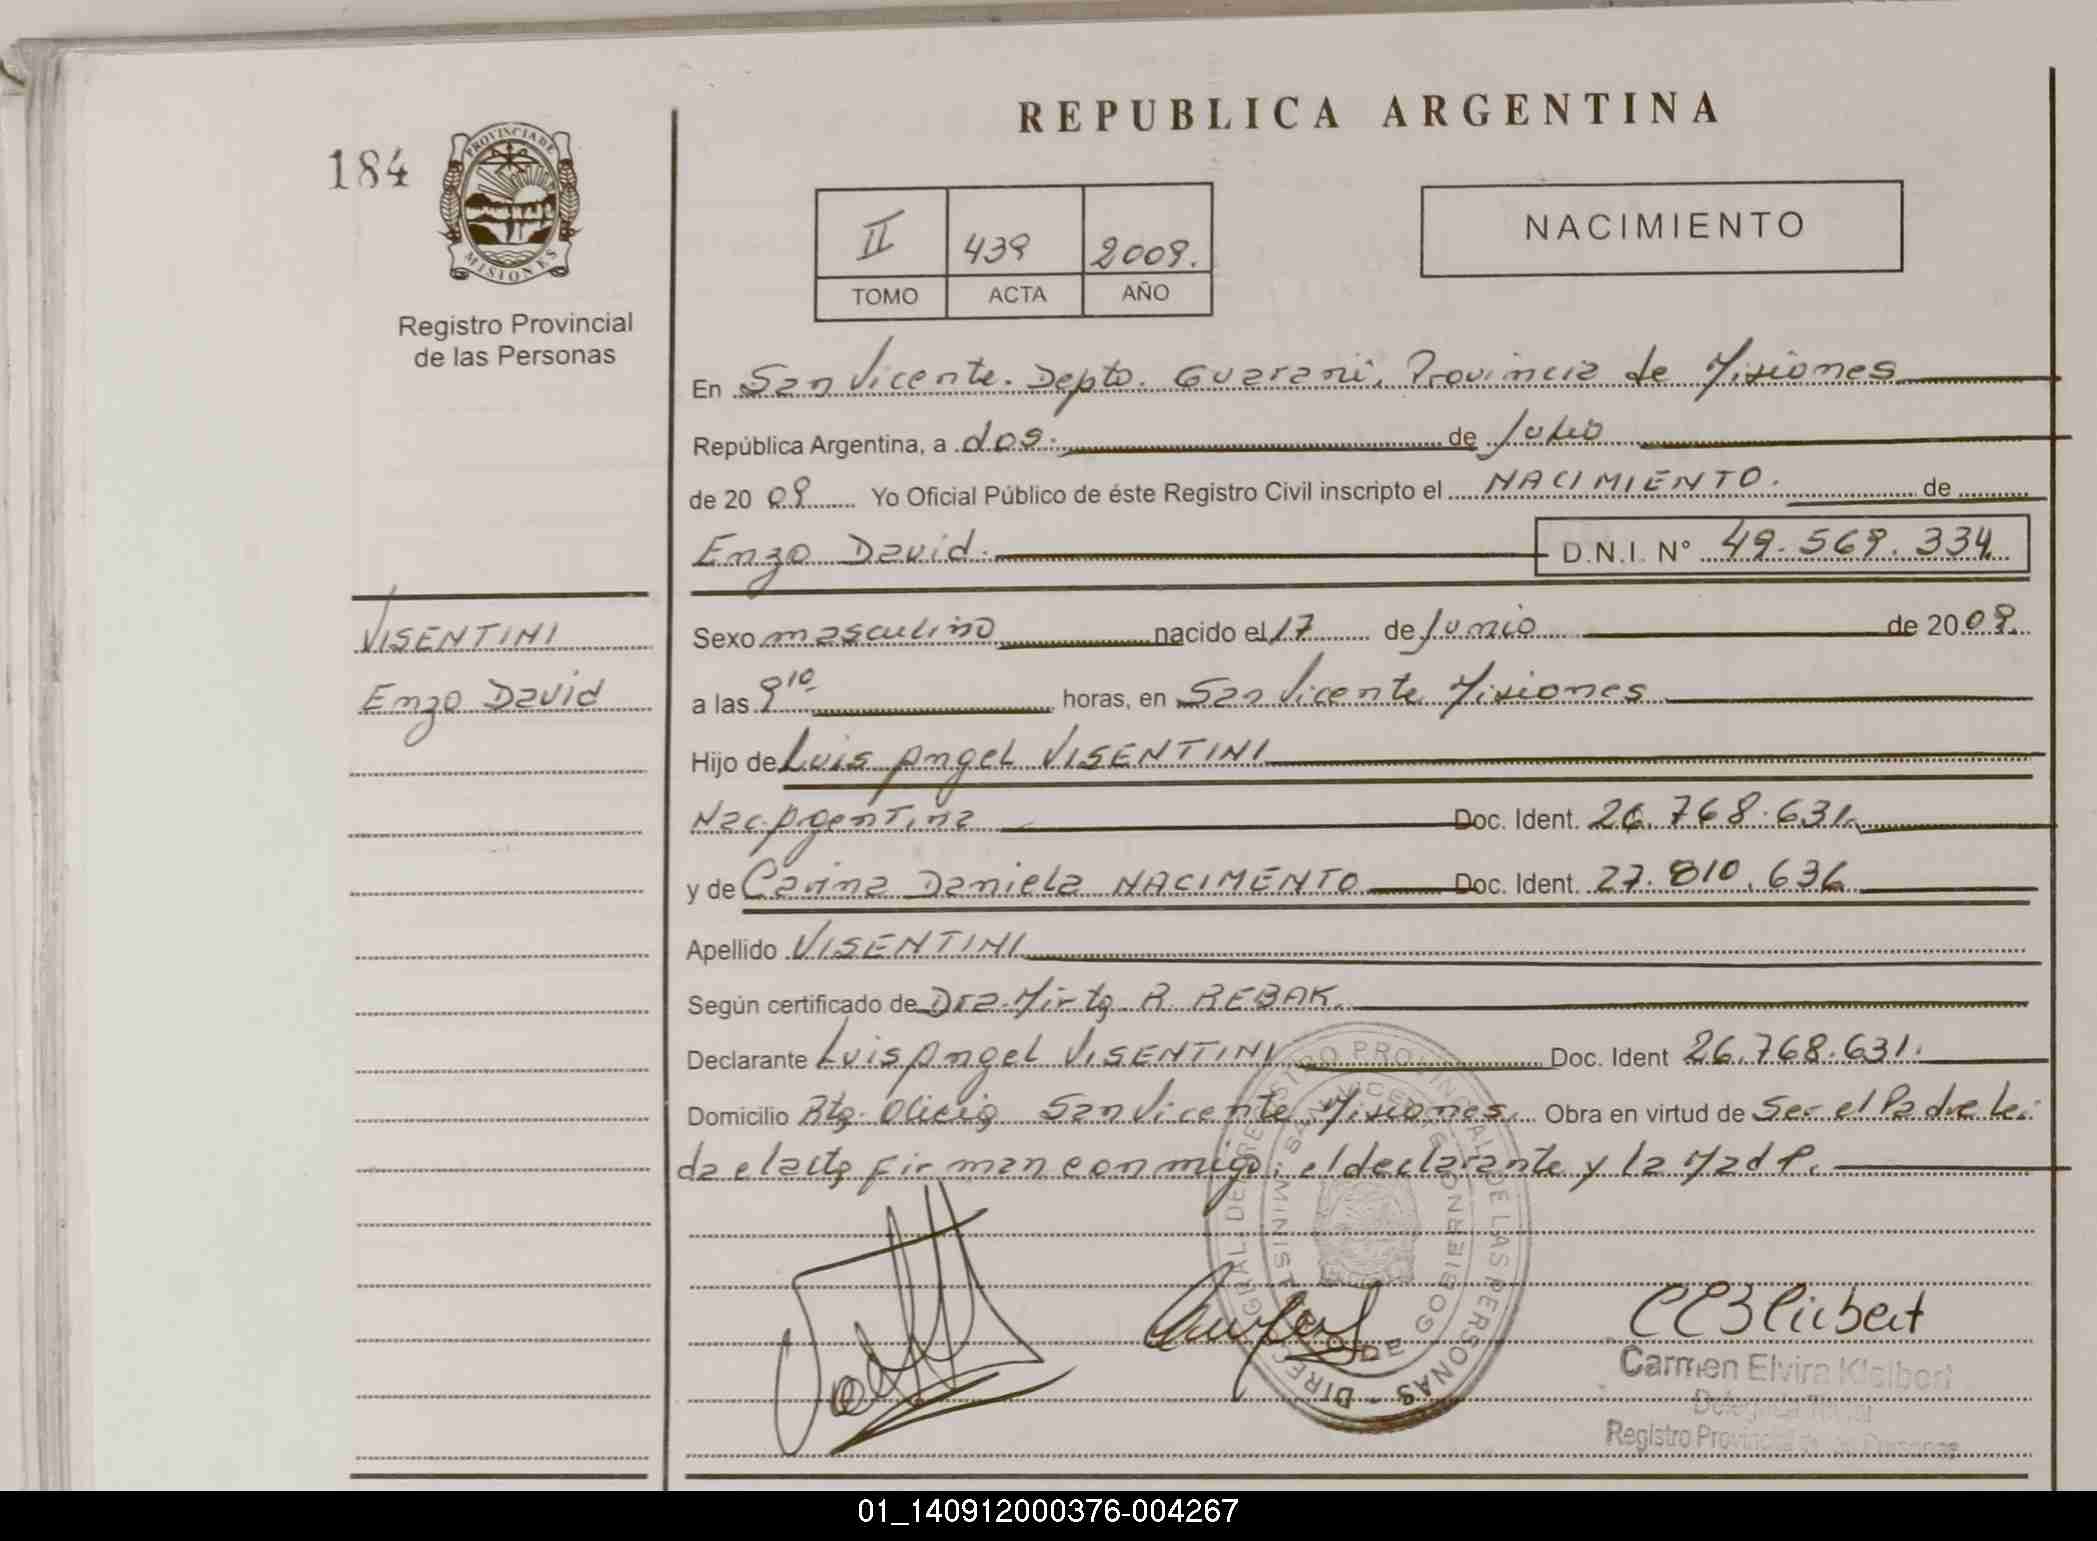 REPUBLICA ARGENTINA
184
PROVINCIA DE
MISIONES
Registro Provincial
de las Personas
II 439 2009.
TOMO ACTA AÑO
NACIMIENTO
En San Vicente. Depto. Guarani, Provincia de Misiones
República Argentina, a dos. de Julio
de 20 09 Yo Oficial Público de éste Registro Civil inscripto el NACIMIENTO. de
Enzo David. D.N.I. N° 49.569.334
VISENTINI
Enzo David
Sexo masculino nacido el 17 de Junio de 2009.
a las 9 10 horas, en San Vicente Misiones
Hijo de Luis Angel VISENTINI
Nac. Argentina Doc. Ident. 26.768.631.
y de Carina Daniela NACIMENTO Doc. Ident. 27.810.636
Apellido VISENTINI
Según certificado de Dra. Mirta R. REBAK.
Declarante Luis Angel VISENTINI Doc. Ident 26.768.631.
Domicilio San Vicente Misiones. Obra en virtud de Ser el Padre Lei
da el acta firman conmigo: el declarante y la Madre.
DIREC REGISTRO PROVINCIAL DE LAS PERSONAS
SAN VICENTE
MINISTERIO DE GOBIERNO
Carmen Elvira Kleibert
Delegada Titular
Registro Provincial de las Personas
01_140912000376-004267